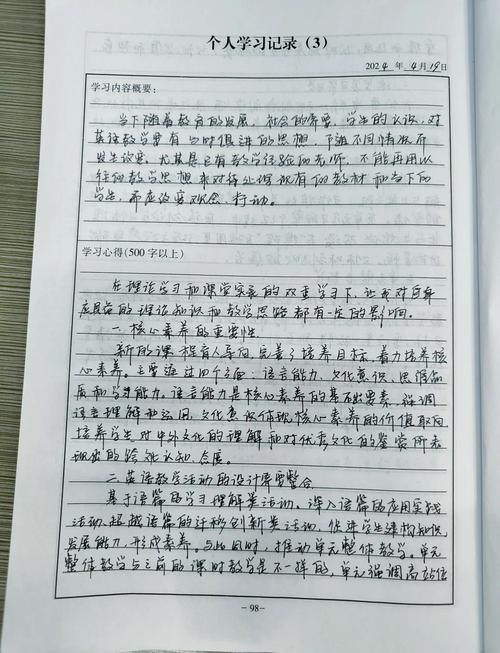 个人学习记录（3）
2024 年 4 月 19 日
学习内容概要：
当下随着教育的发展、社会的需要、学生的认识，对
英语教学要有与时俱进的思想，下随不同情况而
发生改变。尤其是已有教学经验的老师，不能再用以
往的教学思想来对待处理现有的教材和当下的
学生，而应改变观念、行动。
学习心得（500 字以上）
在理论学习和课堂实践的双重学习下，让我对自身
应具备的理论知识和教学思路都有一定的影响。
一、核心素养的重要性
新的课程育人导向，完善了培养目标，着力培养核
心素养。主要通过四个方面：语言能力、文化意识、思维品
质和学习能力。语言能力是核心素养的基础要素，强调
语言理解和运用，文化意识体现核心素养的价值取向
培养学生对中外文化的理解和对优秀文化的鉴赏所表
现出的跨文化认知、态度。
二、英语教学活动的设计需要整合
基于语篇的学习理解类活动、深入语篇的应用实践
活动、超越语篇的迁移创新类活动，促进学生建构知识
发展能力、形成素养，与此同时，推动单元整体教学。单元
整体教学与之前的课时教学是不一样的，单元强调高站位
—98—